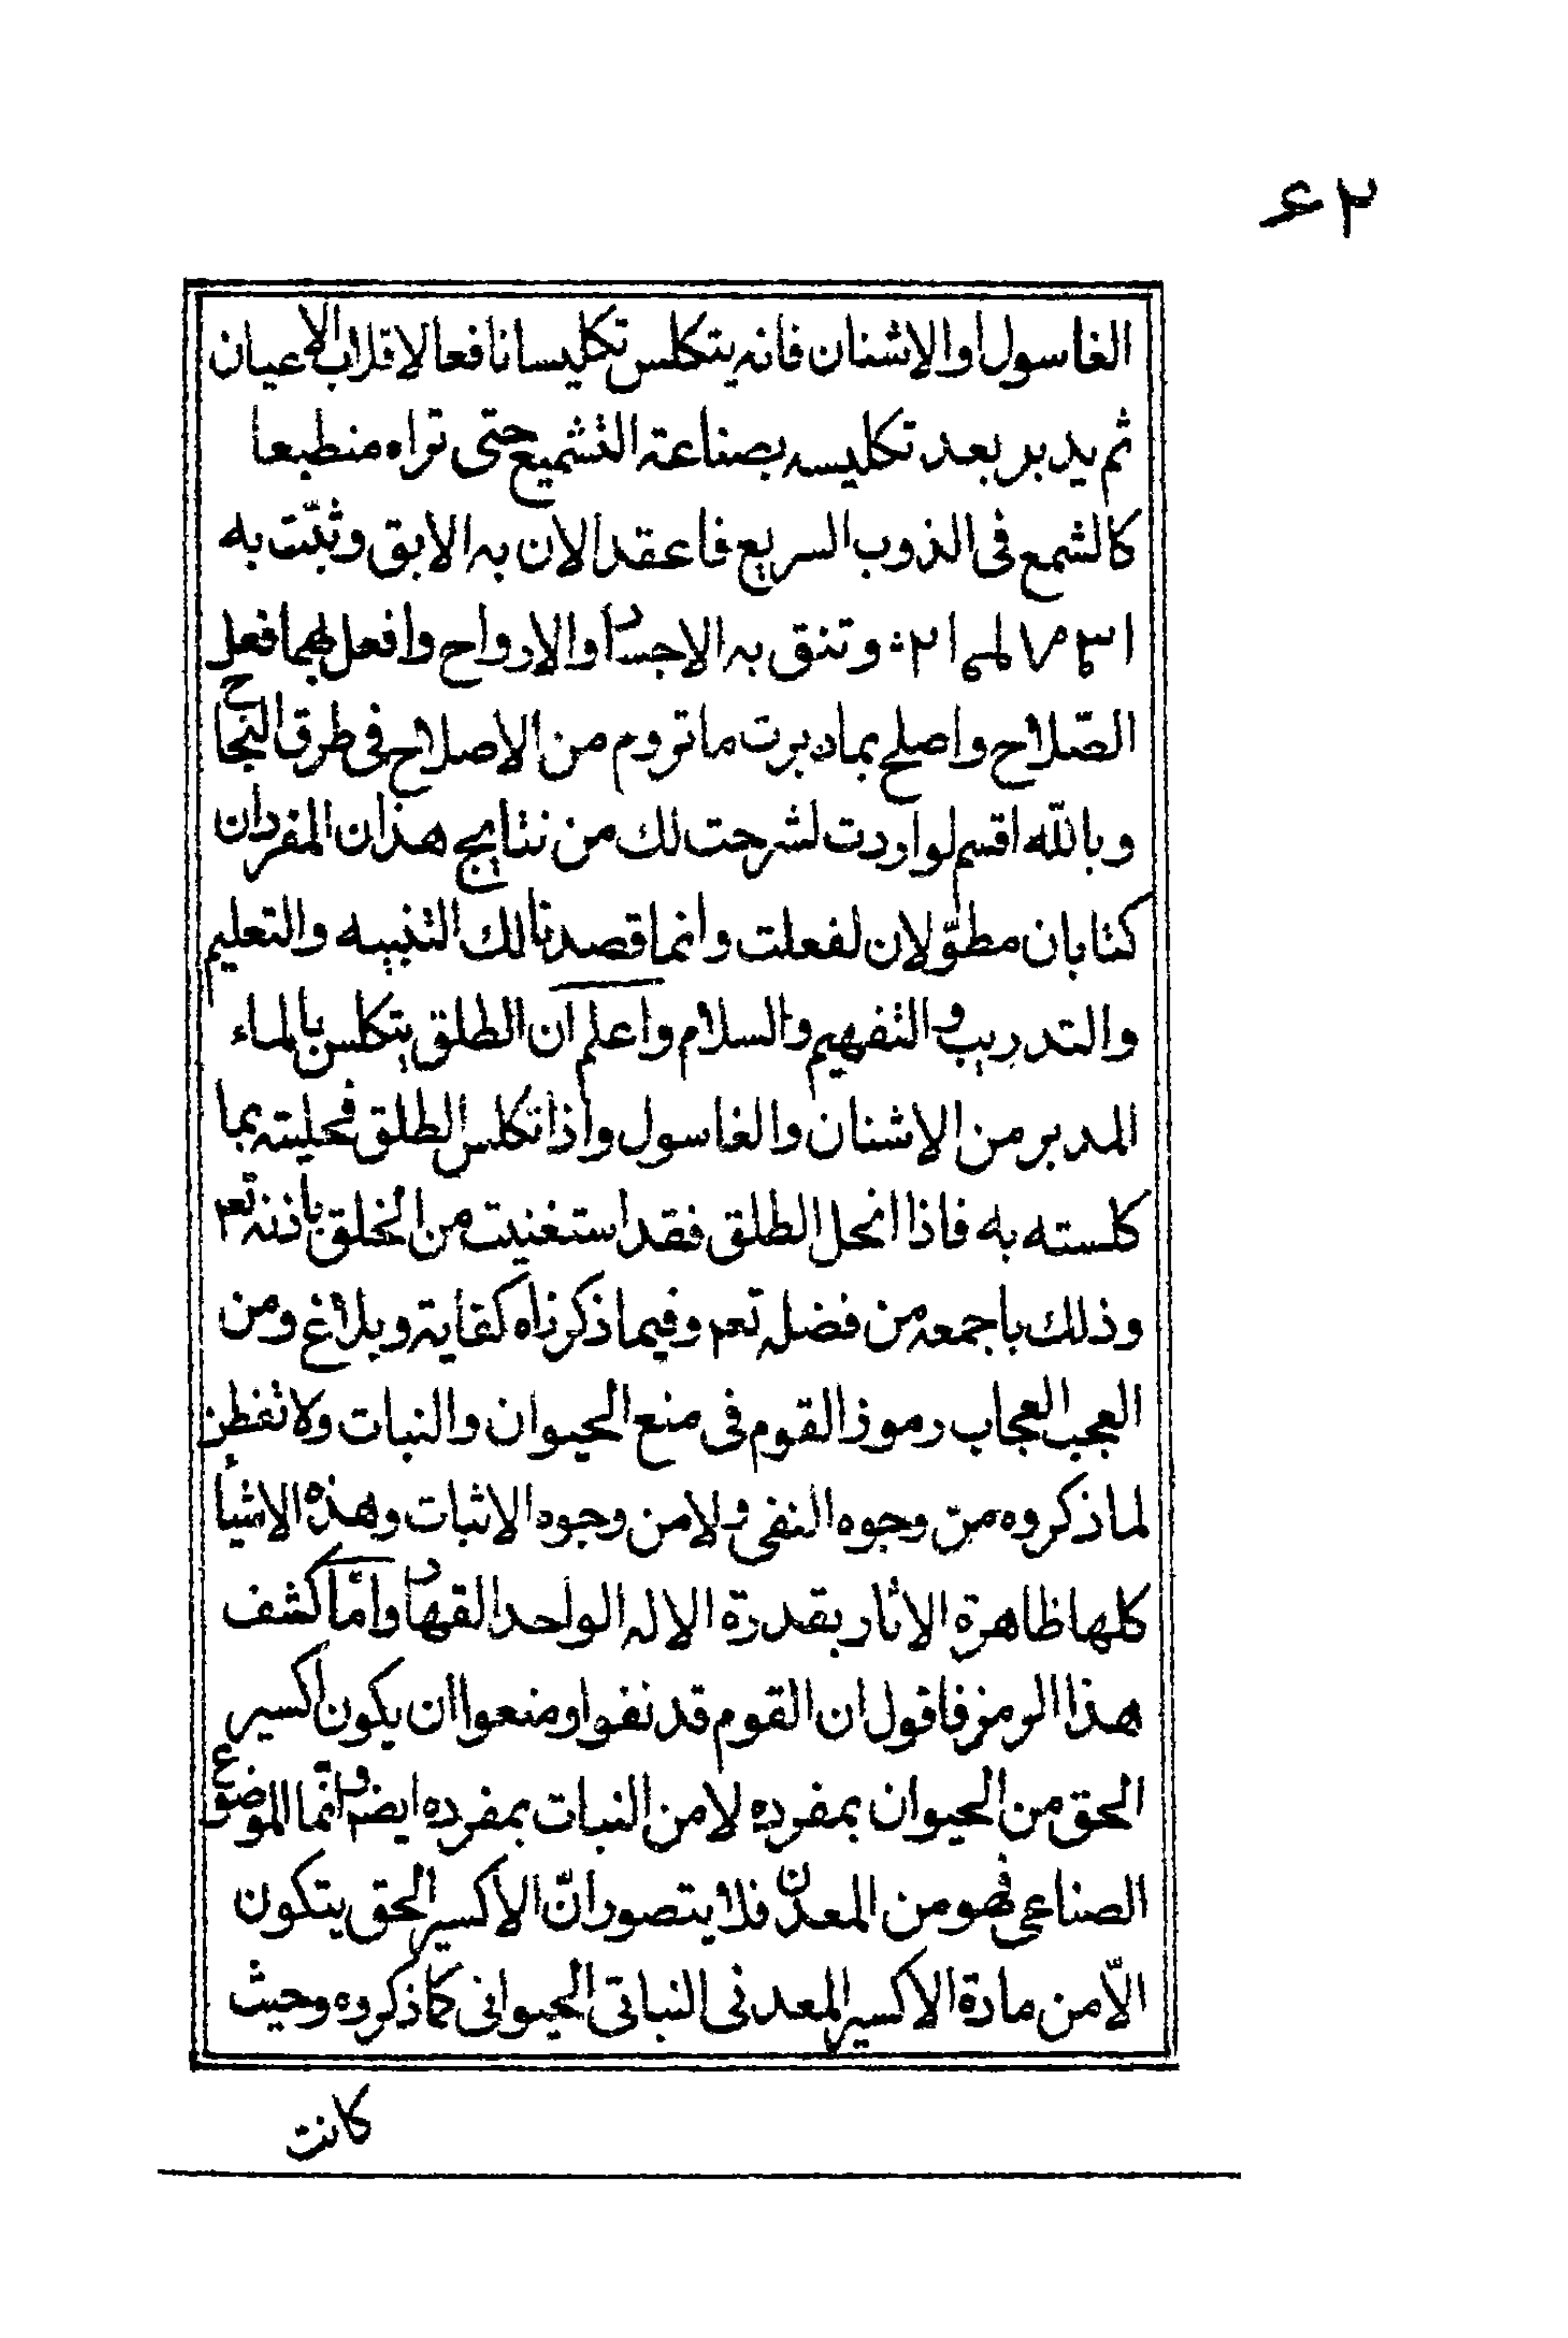 ٢٤
الغاسول او الاشنان فانه يتكلس تكليسا نافعا لاقلاب الاعيان
ثم يدبر بعد تكليسه بصناعة التشميع حتى تراه منطبعا
كالشمع فى الذوب السريع فاعقد الان به الابق وثبّت به
وتنق به الاجساد والارواح وافعل بهما فعل
الصّلاح واصلح بما دبرت ما تروم من الاصلاح فى طرق النجاح
وبالله اقسم لو اردت لشرحت لك من نتايج هذان المفردان
كتابان مطوّلان لفعلت وانما قصدنا لك التنبيه والتعليم
والتدريب والتفهيم والسلام واعلم ان الطلق يتكلس بالماء
المدبر من الاشنان والغاسول واذا تكلس الطلق فحليته بما
كلسته به فاذا انحل الطلق فقد استغنيت من الخلق باذنه تعم
وذلك باجمعه من فضله تعم وفيما ذكرناه كفاية وبلاغ ومن
العجب العجاب رموز القوم فى منع الحيوان والنبات ولا تفطن
لما ذكروه من وجوه النفى ولا من وجوه الاثبات وهذه الاشيأ
كلها ظاهرة الاثار بقدرة الاله الواحد القهار وامّا كشف
هذا الرمز فاقول ان القوم قد نفوا ومنعوا ان يكون اكسير
الحق من الحيوان بمفرده لا من النبات بمفرده ايضم وانّما الموضوع
الصناعى فهو من المعدن فلا يتصور انّ الاكسير الحق يتكون
الّا من مادة الاكسير المعدنى النباتى الحيوانى كما ذكروه وحيث
كانت